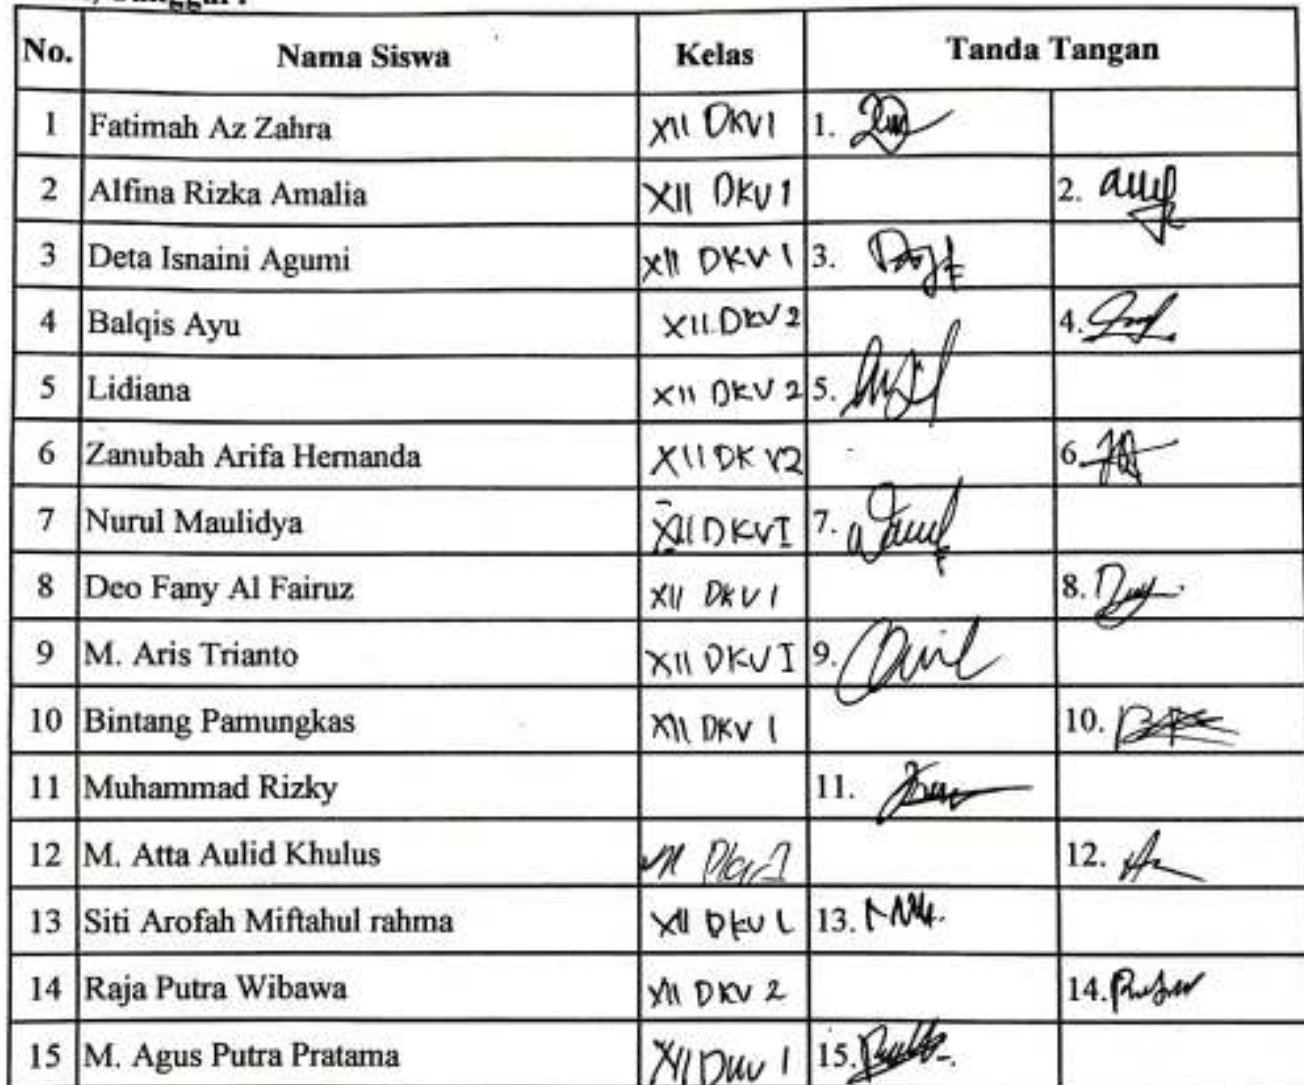 No. Nama Siswa Kelas Tanda Tangan
1 Fatimah Az Zahra XII DKV 1 1.
2 Alfina Rizka Amalia XII DKV 1 2.
3 Deta Isnaini Agumi XII DKV 1 3.
4 Balqis Ayu XII DKV 2 4.
5 Lidiana XII DKV 2 5.
6 Zanubah Arifa Hernanda XII DKV2 6.
7 Nurul Maulidya XII DKV I 7.
8 Deo Fany Al Fairuz XII DKV 1 8.
9 M. Aris Trianto XII DKV I 9.
10 Bintang Pamungkas XII DKV 1 10.
11 Muhammad Rizky 11.
12 M. Atta Aulid Khulus 12.
13 Siti Arofah Miftahul rahma XII DKV 1 13.
14 Raja Putra Wibawa XII DKV 2 14.
15 M. Agus Putra Pratama XII DKV 1 15.